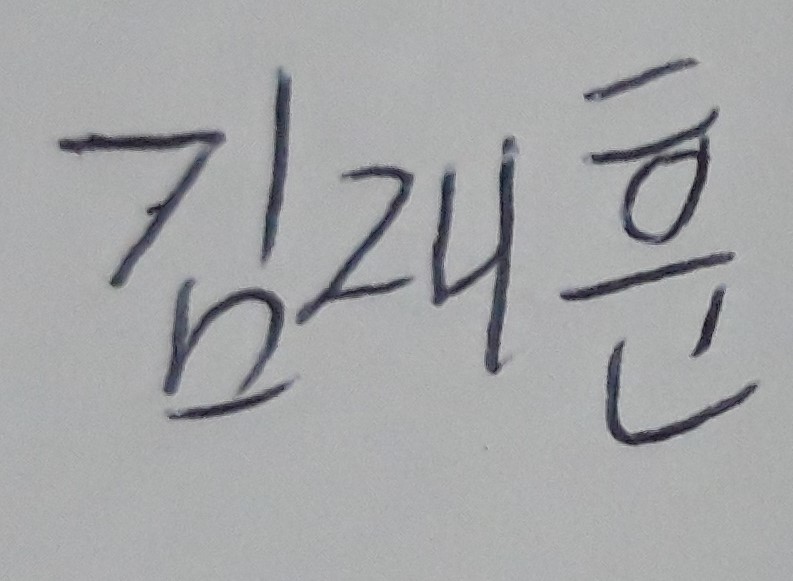 김재훈